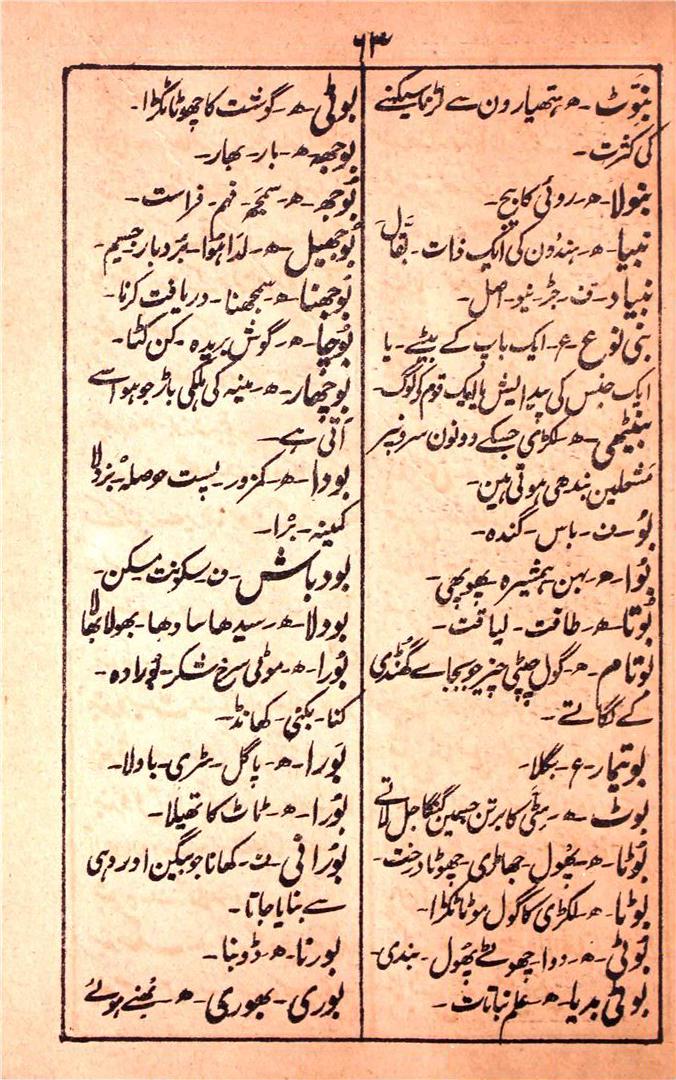 ۶۳
بنَوٹ - ھ - ہتھیارون سے لڑنا سیکھنے
کی کثرت -
بنولا - ھ - روئی کا بیج -
بنیا - ھ - ہندون کی ایک ذات - بقال
بنیاد - ف - جڑ - نیو - اصل -
بنی نوع - ع - ایک باپ کے بیٹے - یا
ایک جنس کی پیدایش یا ایک قوم کے لوگ -
بنیٹھی - ھ - لکڑی جسکے دونون سرونپر
مشعلین بندھی ہوتی ہین -
بُو - ف - باس - گندہ -
بُوا - ھ - بہن ہمشیرہ - پھوپھی -
بُوتا - ھ - طاقت - لیاقت -
بوتام - ھ - گول چپٹی چیز جو بجاے گھُنڈی
کے لگاتے -
بوتیمار - ع - بگلا -
بوٹ - ھ - مٹی کا برتن جسمین گنگا جل لاتے
بُوٹا - ھ - پھُول - جھاڑی - چھوٹا درخت -
بوٹا - ھ - لکڑی کا گول موٹا ٹکڑا -
بُوٹی - ھ - دوا - چھوٹے پھُول - بندی -
بوٹی بدیا - ھ - علم نباتات -
بوٹی - ھ - گوشت کا چھوٹا ٹکڑا -
بوجھ - ھ - بار - بھار -
بُوجھ - ھ - سمجھ - فہم - فراست -
بوجھیل - ھ - لدا ہوا - بُردبار - جسیم -
بُوجھنا - ھ - سمجھنا - دریافت کرنا -
بُوچا - ھ - گوش بریدہ - کن کٹا -
بوچھار - ھ - مینہ کی ہلکی باڑ جو ہوا سے
آتی ہے -
بودا - ھ - کمزور - پست حوصلہ - بزدلا
کمینہ - بُرا -
بودباش - ف - سکونت مسکن -
بودلا - ھ - سیدھا سادھا - بھولا بھالا
بُورا - ھ - موٹی سرخ شکر - بُورادہ -
کنا - بکنی - کھانڈ -
بَورا - ھ - پاگل - سڑی - باولا -
بورا - ھ - ٹاٹ کا تھیلا -
بُورانی - ف - کھانا جو بیگن اور دہی
سے بنایا جاتا -
بورنا - ھ - ڈوبنا -
بوری - بھوری - ھ - بھُنے ہوئے